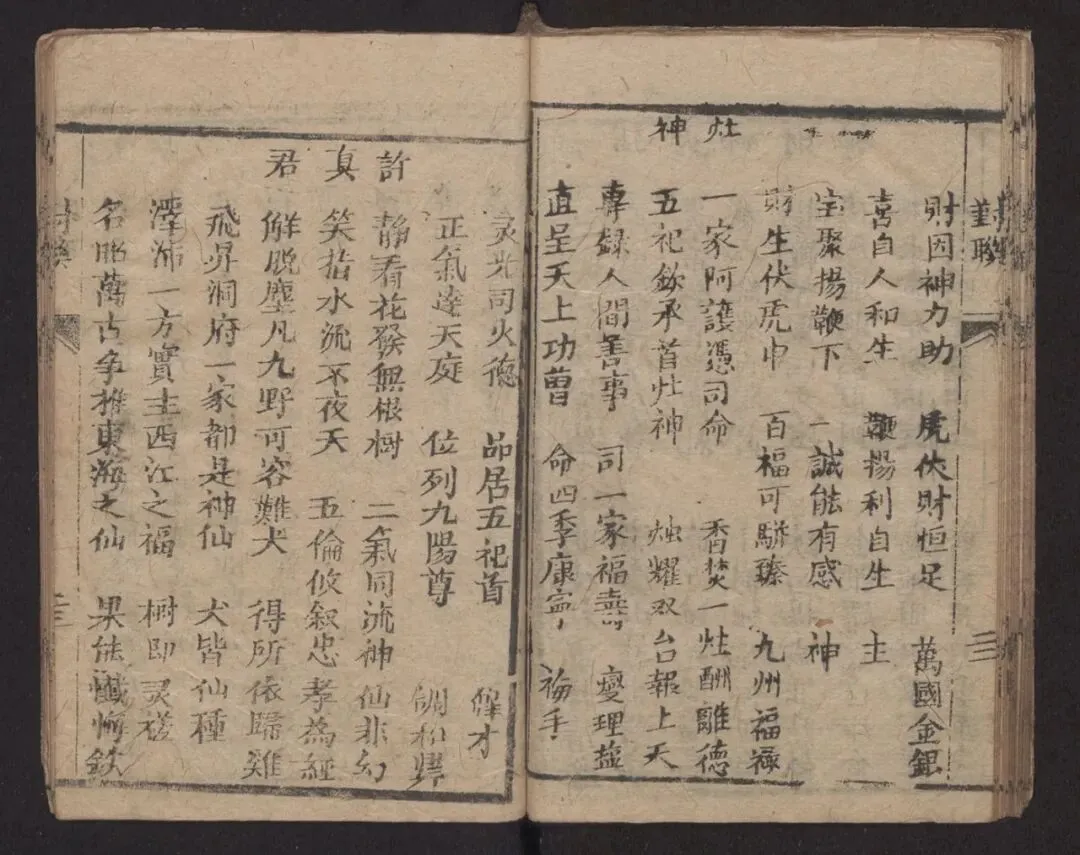 對聯
財因神力助　虎伏財恒足　萬國金銀
喜自人和生　鞭揚利自生　主
宝聚揚鞭下　一誠能有感　神
財生伏虎中　百福可駢臻　九州福禄
灶神
一家阿護憑司命　香焚一灶酬離德
五祀欽承首灶神　烛耀双台報上天
專錄人間善事　司一家福壽　燮理盐
直呈天上功曹　命四季康寧　梅手
灵光司火德　品居五祀首
正氣達天庭　位列九陽尊　調和鼎
許真君
靜看花發無根樹　二氣同流神仙非幻
笑指水流不夜天　五倫攸叙忠孝為經
解脱塵凡九野可容雞犬　得所依歸雞
飛昇洞府一家都是神仙　犬皆仙種
澤沛一方實主西江之福　樹即灵槎
名昭萬古争推東海之仙　果能懺悔鉄
三